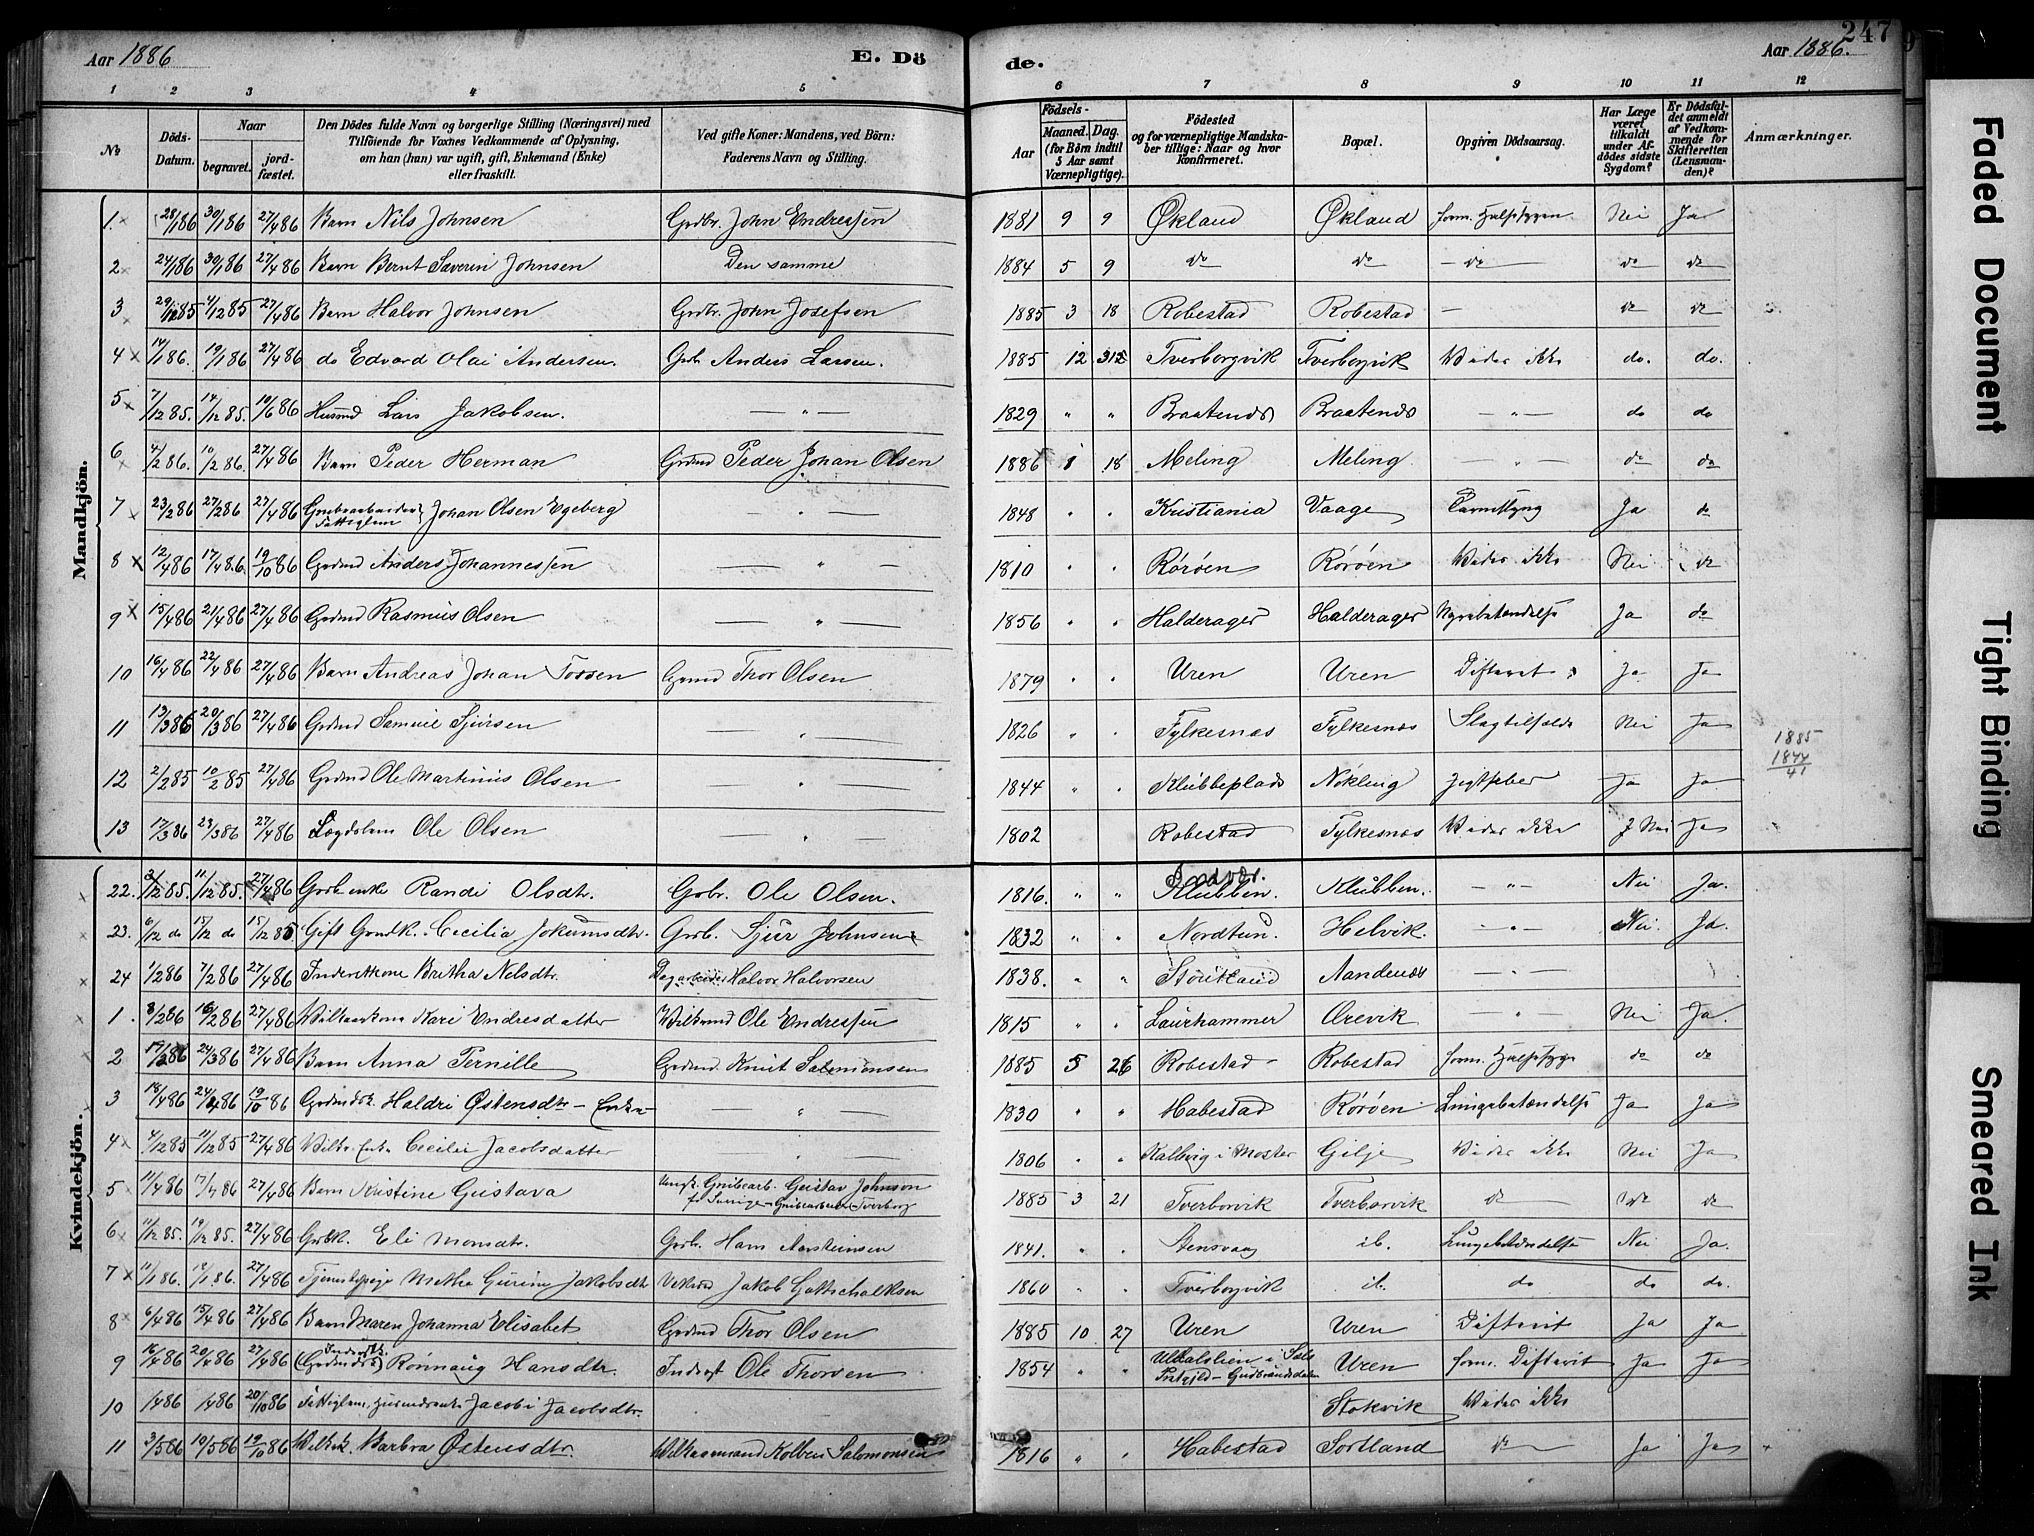 Aar 1886 E. Dö de. Aar 1886. 247
1 2 3 4 5 6 7 8 9 10 11 12
№ Döds-Datum. Naar begravet. jord-fæstet. Den Dödes fulde Navn og borgerlige Stilling (Næringsvei) med Tilföiende for Voxnes Vedkommende af Oplysning, om han (hun) var ugift, gift, Enkemand (Enke) eller fraskilt. Ved gifte Koner: Mandens, ved Börn: Faderens Navn og Stilling. Födsels- Aar Maaned. Dag. (for Börn indtil 5 Aar samt Værnepligtige). Födested og for værnepligtige Mandskaber tillige: Naar og hvor Konfirmeret. Bopæl. Opgiven Dödsaarsag. Har Læge været tilkaldt under Afdödes sidste Sygdom? Er Dödsfaldet anmeldt af Vedkommende for Skifteretten (Lensmanden)? Anmærkninger.
Mandkjön.
1. 28/1 86 30/1 86 27/4 86 Barn Nils Johnsen Grdbr. John Endressen 1881 9 9 Økland Økland Nei Ja
2 24/1 86 30/1 86 27/4 86 Barn Bernt Severin Johnsen Den samme 1884 5 9 do do do do do
3 29/11 85 4/12 85 27/4 86 Barn Halvor Johnsen Grdbr. John Josefsen 1885 3 18 Robestad Robestad — do do
4 14/1 86. 19/1 86 27/4 86 do Edvard Olai Andersen. Grb. Anders Larsen. 1885 12 Tverborgvik Tverborgvik Vides ikke do. do.
5 7/12 85. 14/12 85. 10/6 86 Husmd Lars Jakobsen. — " — 1829 " " Braatenes Braatenes — " — do do
6 4/2 86. 10/2 86. 27/4 86 Barn Peder Herman Grdmd Peder Johan Olsen 1886 1 18 Meling Meling. — " — do do
7 23/2 86 27/2 86 27/4 86 Grubearbeider Fattiglem Johan Olsen Egeberg — " — 1848 " " Kristiania Vaage Ja do
8 12/4 86 17/4 86. 19/10 86 Grdmd Anders Johannessen — " — 1810 " " Rørøen Rørøen Vides ikke Nei do
9 15/4 86 21/4 86 27/4 86 Grdmd Rasmus Olsen — " — 1856 " " Halderager Halderager Nyrebetændelse Ja do
10 16/4 86 22/4 86 27/4 86 Barn Andreas Johan Torsen Grdmd Thor Olsen 1879 " " Uren Uren Difterit Ja Ja
11 13/3 86 20/3 86 27/4 86 Grdmd Samuel Sjursen — " — 1826 " " Fylkesnæs Fylkesnæs Slagtilfælde Nei Ja
1885
1844
41
12 2/2 85 10/2 85 27/4 86 Grdmd Ole Martinius Olsen — " — 1844 " " Klubbeplads Nøkling Gigtfeber Ja Ja
13 17/3 86 23/3 86 27/4 86 Lægdslem Ole Olsen — " — 1802 Robestad Fylkesnæs Vides ikke Nei Ja
Kvindekjön.
22. 3/12 85. 11/12 85. 27/4 86 Grdb. enke Randi Olsdtr. Grbr. Ole Olsen. 1816. " " Klubben. Klubben. — " — Nei Ja.
23. 6/12 do 15/12 do 15/12 85 Gift Grmdk. Cecilia Jokumsdtr. Grdb. Sjur Johnsen 1832 " " Nordtun. Helvik. — " — Nei. Ja.
24 1/2 86 7/2 86 27/4 86 Inderstkone Britha Nelsdtr. Halvor Halvorsen 1838. " " Stoutland Aandenæs — " —
1. 8/2 86 16/2 86 27/4 86 Kari Endresdatter Ole Endressen 1815 " " Laurhammer Ørevik — " — Nei Ja.
2 19/3 86 24/3 86 27/4 86 Barn Anna Pernille Grdmd. Knut Salomonsen 1885 5 26 Robestad Robestad do do
3 18/4 86 24/4 86 19/10 86 Grdmdsk. Haldri Østensdtr — Enke — " — 1830 " " Habestad Rørøen Lungebetændelse Ja Ja
4 4/12 85 11/12 85 27/4 86 Cecilie Jacobsdatter — " — 1806 " " Kalbvig i Moster Gilje Vides ikke Nei Ja
5 11/4 86 17/4 86 27/4 86 Barn Kristine Gustava Grubearb. Gustav Johnson fr Sverige — Grubearbeider Tverborg 1885 3 21 Tverborvik Tverborvik do do do
6 11/12 85. 19/12 85. 27/4 86 Grbk. Eli Monsdtr. Grb. Hans Aarsteinsen 1841. " " Stensvaag ib. Lungebetændelse Nei Ja.
7 11/1 86. 18/1 86. 27/4 86 Tjenestepige Metha Gurine Jakobsdtr Jakob Gottschalksen 1860 " " Tverborgvik ib. do do do.
8 6/4 86 15/4 86 27/4 86 Barn Maren Johanna Elisabet Grdmd Thor Olsen 1885 10 27 Uren Uren Difterit Ja Ja
9 16/4 86 20/4 86 27/4 86 Rønnaug Hansdtr. Inderst Ole Thorsen 1854 " " i Sels Prstgjeld — Gudbrandsdalen Uren Difterit Ja Ja
10 /4 86 /4 86 20/10 86 Fattiglem, Jacobi Jacobsdtr. Stokvik Vides ikke
11 3/5 86 10/5 86 19/10 86 Barbra Østensdtr. Kolben Salomonsen 1816 " " Habestad Sortland do Ja Ja
Faded Document
Tight Binding
Smeared Ink